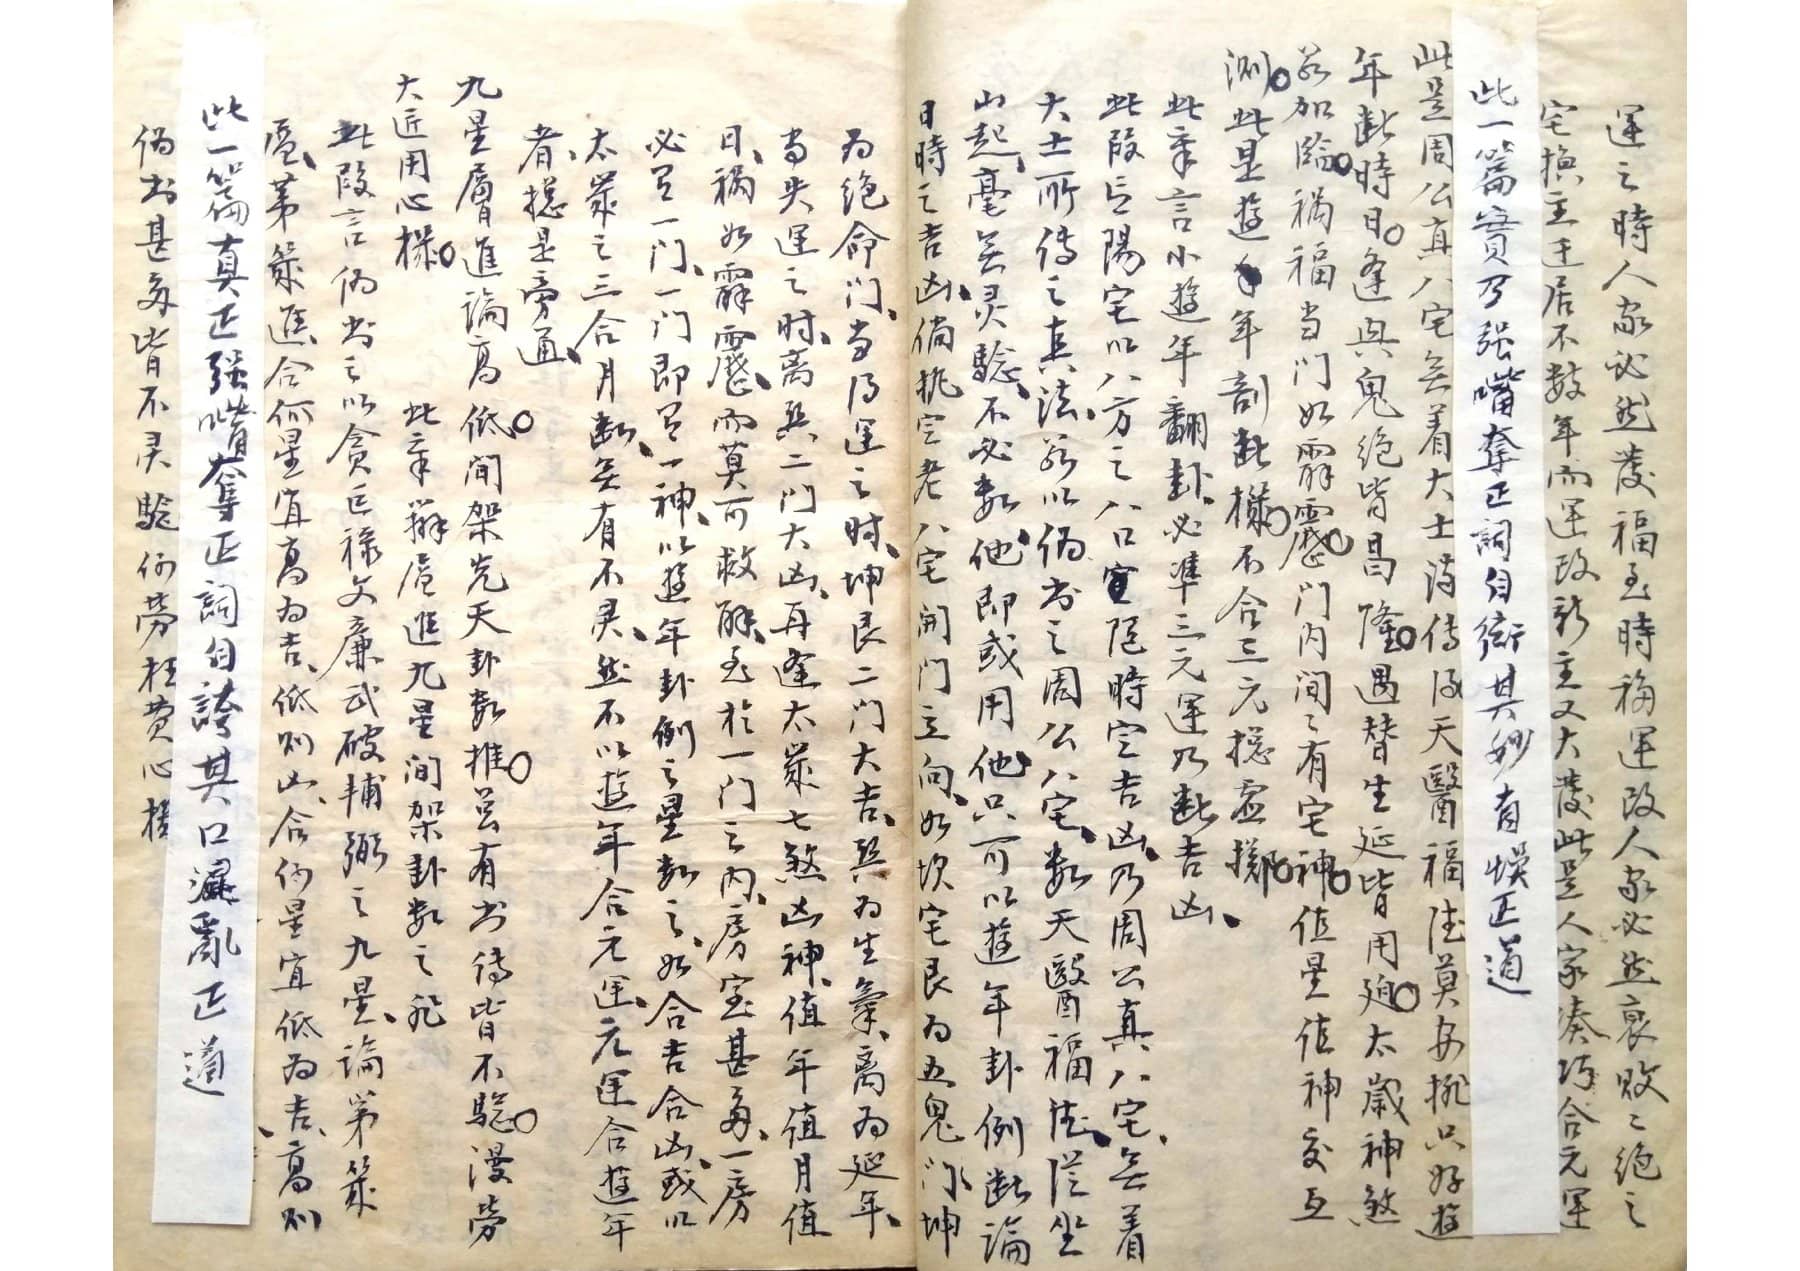 運之時人家必然發福至時移運改人家必然衰敗之絕之
宅換主迁居不數年而運改新主又大發此是人家湊巧合元運
此一篇實乃强嘴奪正詞自衒其妙有悞正道
此是周公真八宅無着大士流傳的天醫福德莫安排只好遊
年斷時日逢興鬼绝皆昌隆遇替生延皆用廹太歲神煞
若加臨禍福当门如霹靂门内间之有宅神值星值神交互
測此是遊年剖斷樣不合三元摠虛擲
此章言小遊年翻卦必準三元運乃斷吉凶
此段言陽宅以八方之八口宜隨時定吉凶乃周公真八宅無着
大士所傳之真法若以伪书之周公八宅数天醫福德從坐
山起毫無灵驗不必数他即或用他只可以遊年卦例斷論
日時之吉凶倘執定老八宅開门立向如坎宅艮为五鬼门坤
为绝命门当得運之时坤艮二门大吉巽为生氣离为延年
当失運之时离巽二门大凶再逢太歲七煞凶神值年值月值
日禍如霹靂而莫可救解至於一门之内房室甚多一房
必司一门一门即司一神以遊年卦例之星数之如合吉合凶或以
太歲之三合月斷無有不灵然不以遊年合元運元運合遊年
者摠是旁通
九星層進論高低间架先天卦数推虽有书传皆不騐漫劳
大匠用心機
此章辨層進九星间架卦数之非
此段言伪书之以貪巨祿文廉武破輔弼之九星論第幾
層第幾進合何星宜高为吉低则凶合何星宜低为吉高则
此一篇真正强嘴奪正詞自誇其口混亂正道
伪书甚多皆不灵騐何劳枉費心機